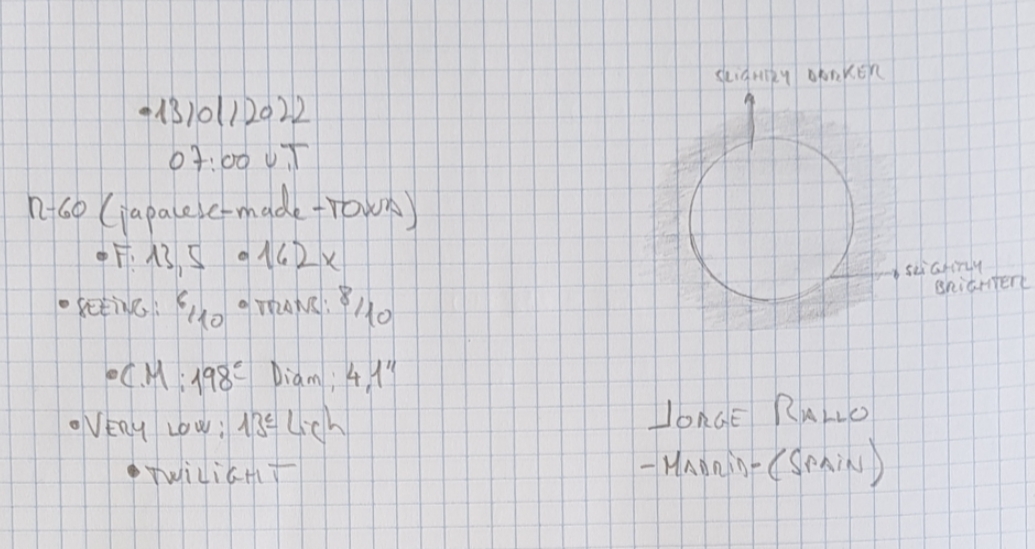 •13/01/2022
07:00 UT
R-60 (japanese-made-TOWA)
•F: 13,5 •162x
•SEEING: 6/10 •TRANS: 8/10
•C.M: 198º Diam: 4,1"
•VERY LOW: 13º
•TWILIGHT
SLIGHTLY DARKER
SLIGHTLY
BRIGHTER
JORGE RALLO
-MADRID-(SPAIN)